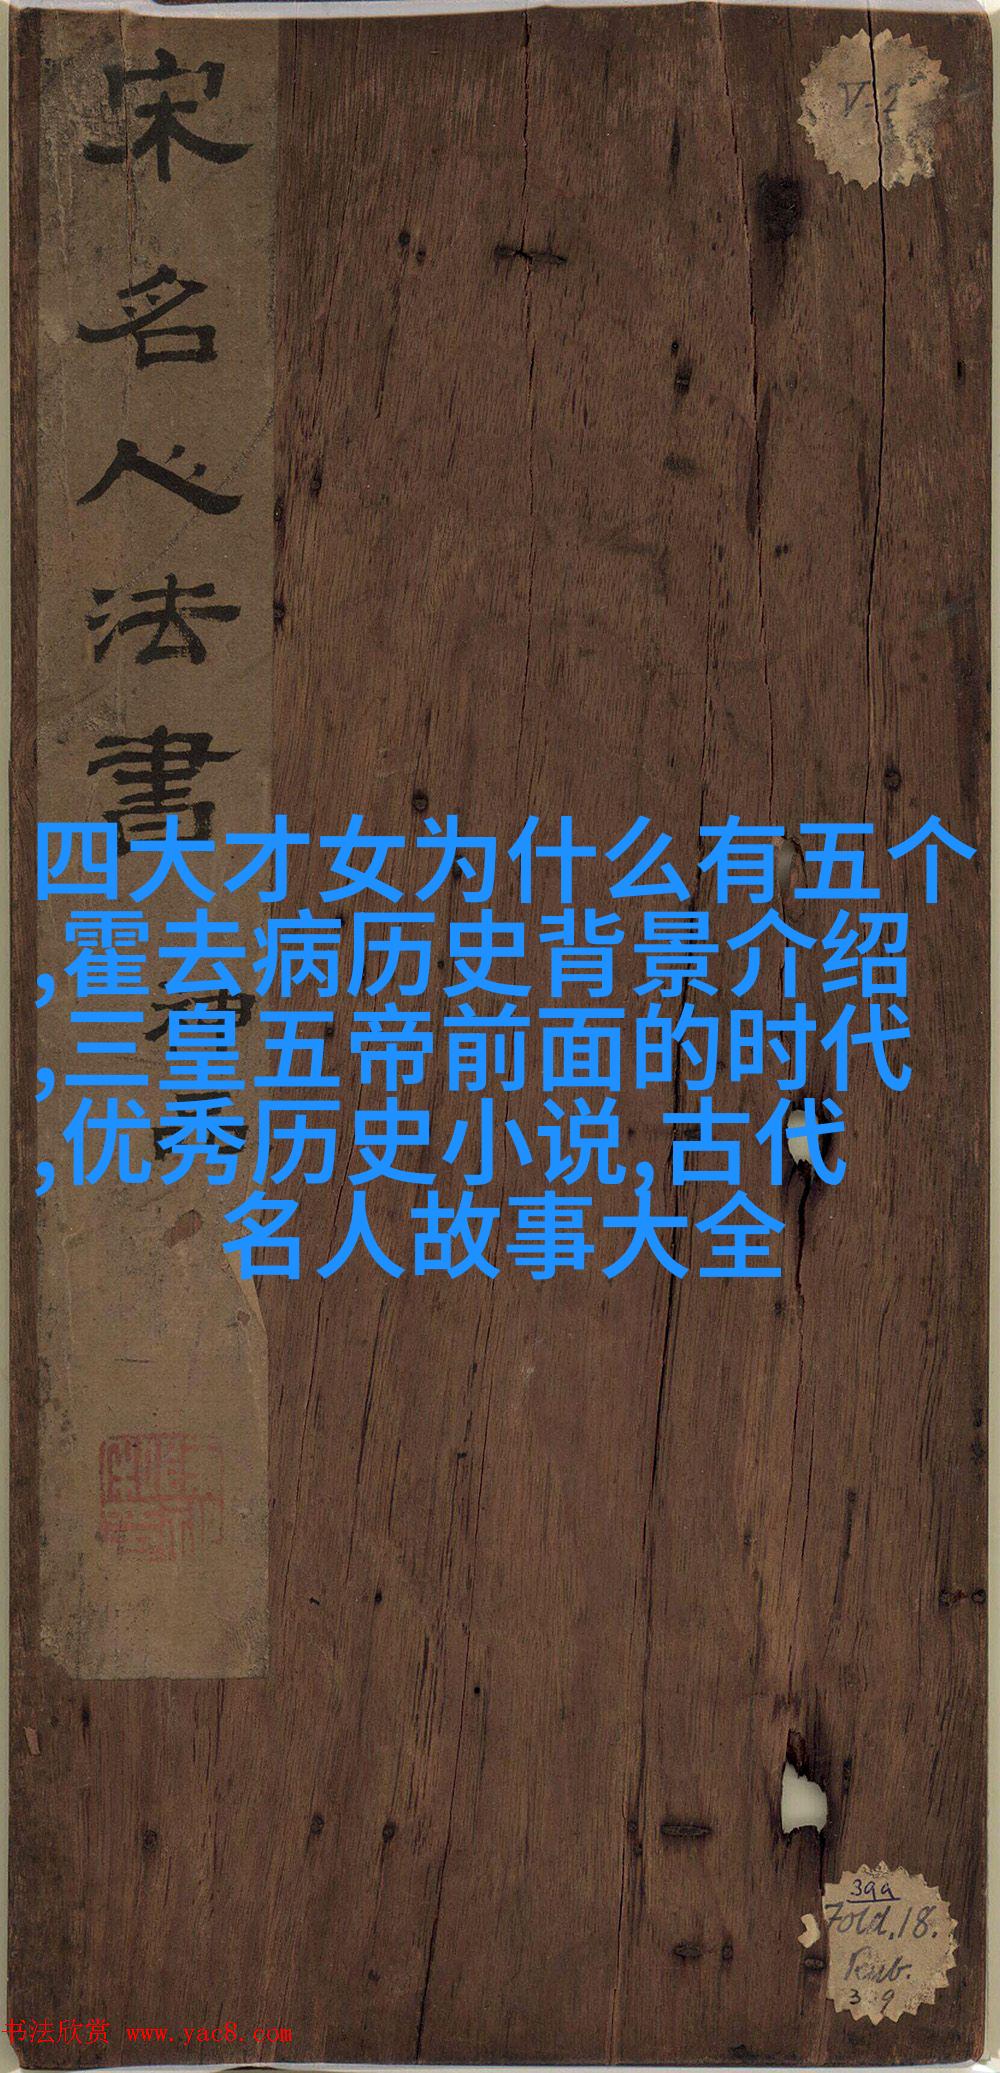 宋名人法書
四大才女为什么有五个
,霍去病历史背景介绍
,三皇五帝前面的时代
,优秀历史小说,古代
名人故事大全
V-2
399
Fold.18.
书法欣赏 www.yac8.com